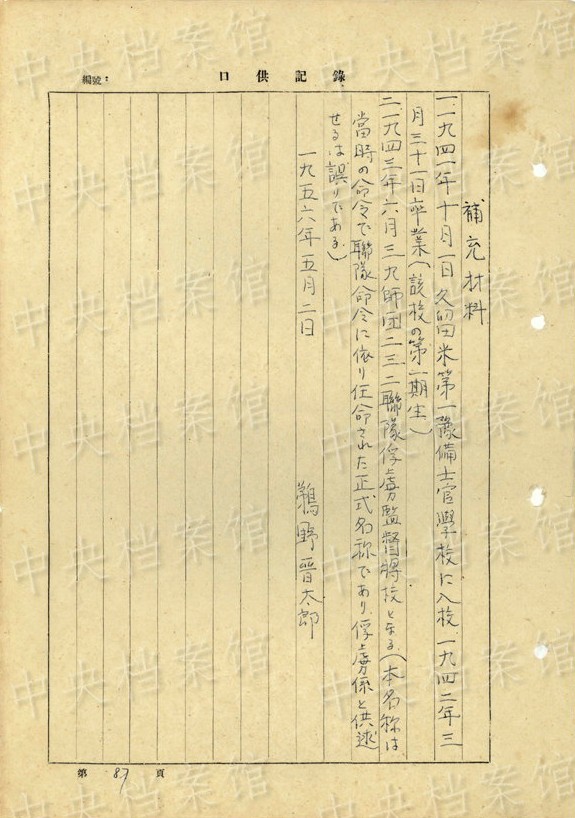 編號：
口供記錄
補充材料
一、一九四一年十月一日久留米第一豫備士官學校に入校、一九四二年三
月三十一日卒業（該校の第一期生）
二、一九四三年六月三九師団二三二聯隊俘虜監督将校となる（本名称は
當時の命令で聯隊命令に依り任命された正式名称であり、俘虜係と供述
せるは誤りである。）
一九五六年五月二日
鵜野晋太郎
第 87 頁
中央档案馆